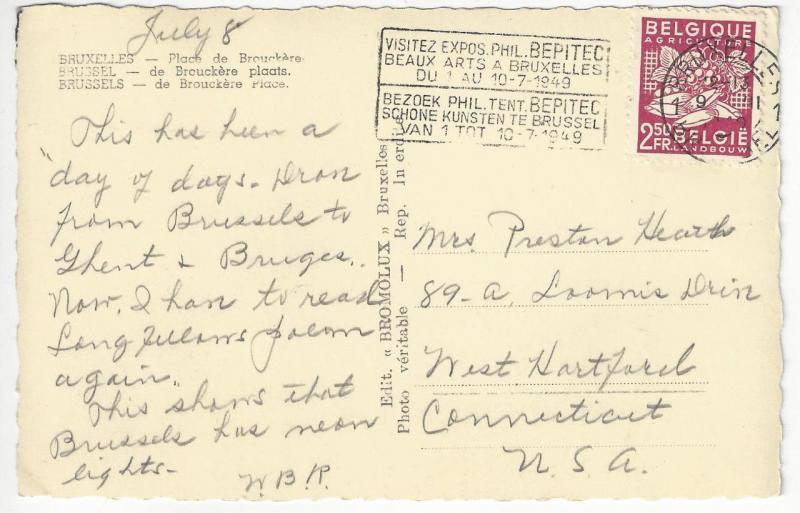 July 8
BRUXELLES — Place de Brouckère.
BRUSSEL — de Brouckère plaats.
BRUSSELS — de Brouckère Place.
This has been a
day of days. Driv
from Brussels to
Ghent & Bruges.
Now, I hav to read
Longfellows poem
again.
This shows that
Brussels has neon
lights-
W.B.R.
Edit. « BROMOLUX » Bruxelles
Photo véritable — Rep. Interdite
VISITEZ EXPOS. PHIL. BEPITEC
BEAUX ARTS A BRUXELLES
DU 1 AU 10-7-1949
BEZOEK PHIL. TENT. BEPITEC
SCHONE KUNSTEN TE BRUSSEL
VAN 1 TOT 10-7-1949
BELGIQUE
AGRICULTURE
2,50 FR.
BELGIË
LANDBOUW
Mrs. Preston Heath
89-A, Loomis Driv
West Hartford
Connecticut
U.S.A.